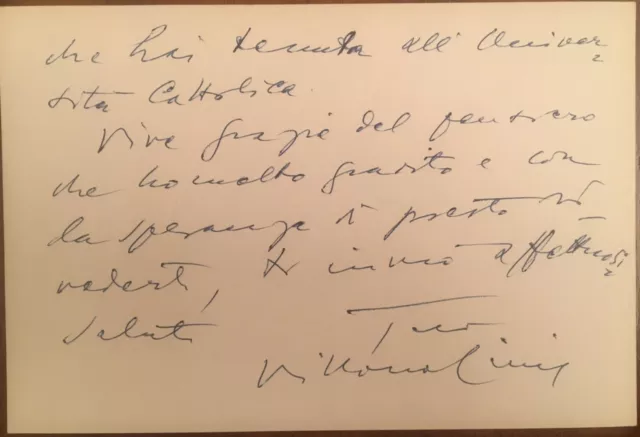 che hai tenuta all'Univer=
sità Cattolica.
Vive grazie del pensiero
che ho molto gradito e con
la speranza di presto ri
vederti, ti invio affettuosi
saluti
Tuo
Vittorio Cini